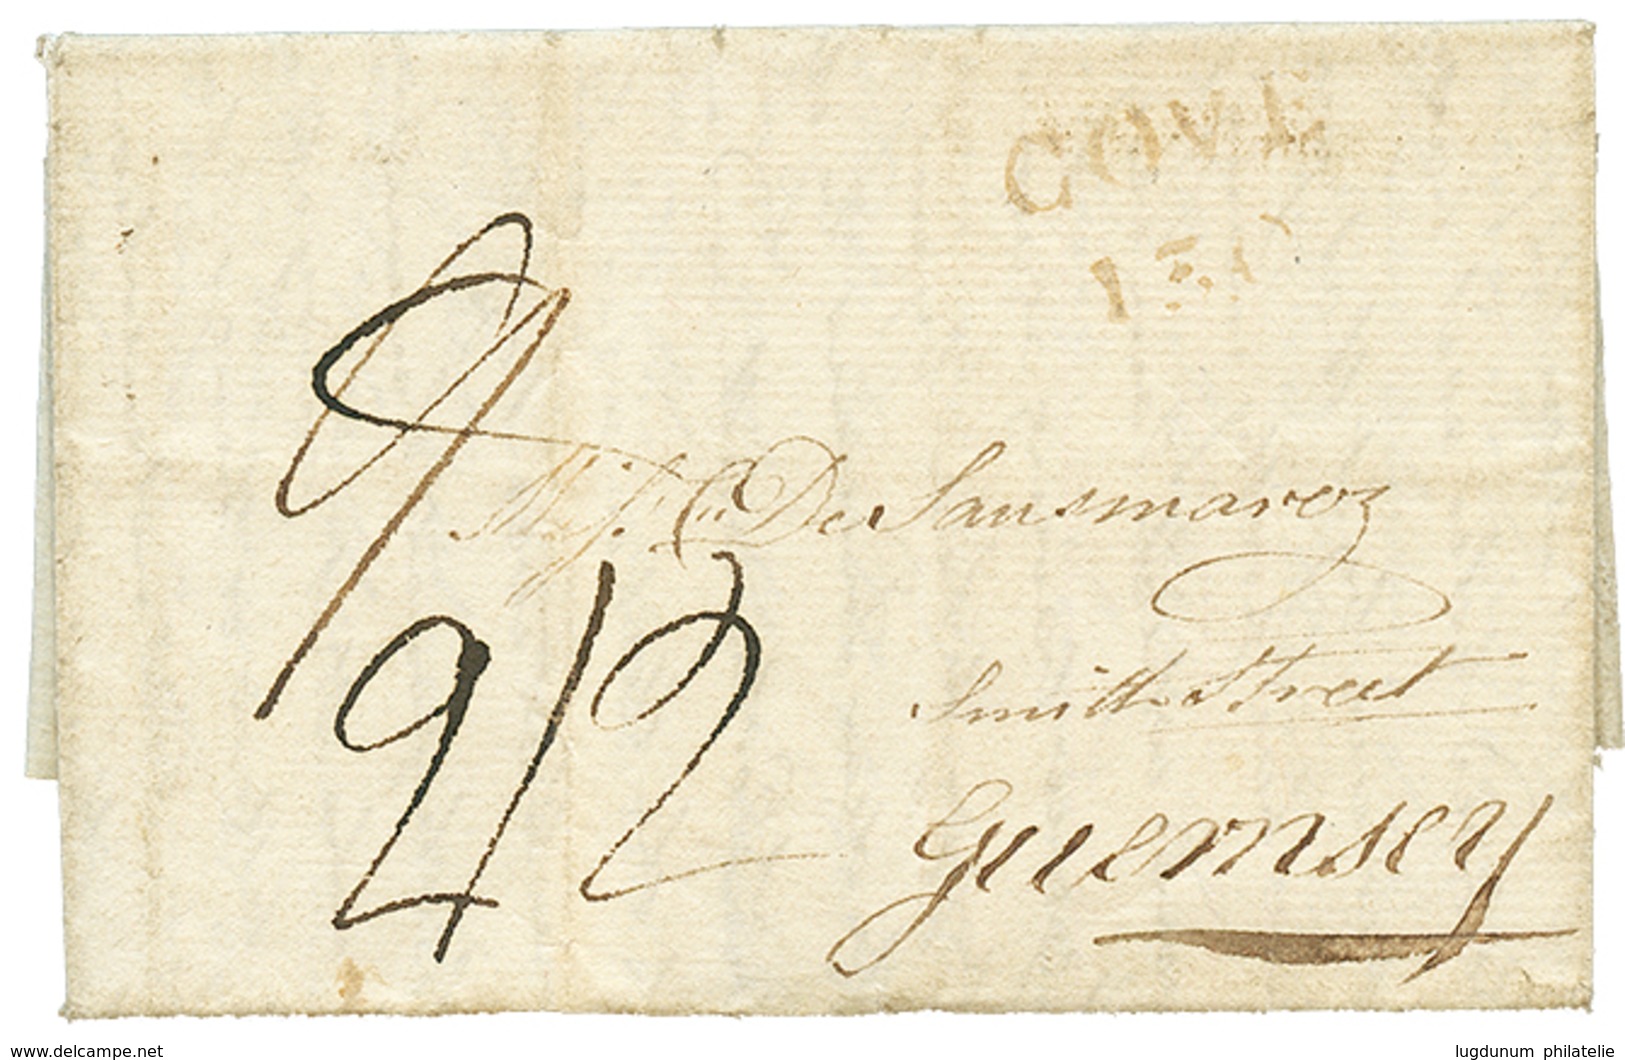 COVE
9
Miss Cn De Sausmarez
2/2
Smith Street
Guernsey
www.delcampe.net
lugdunum philatelie